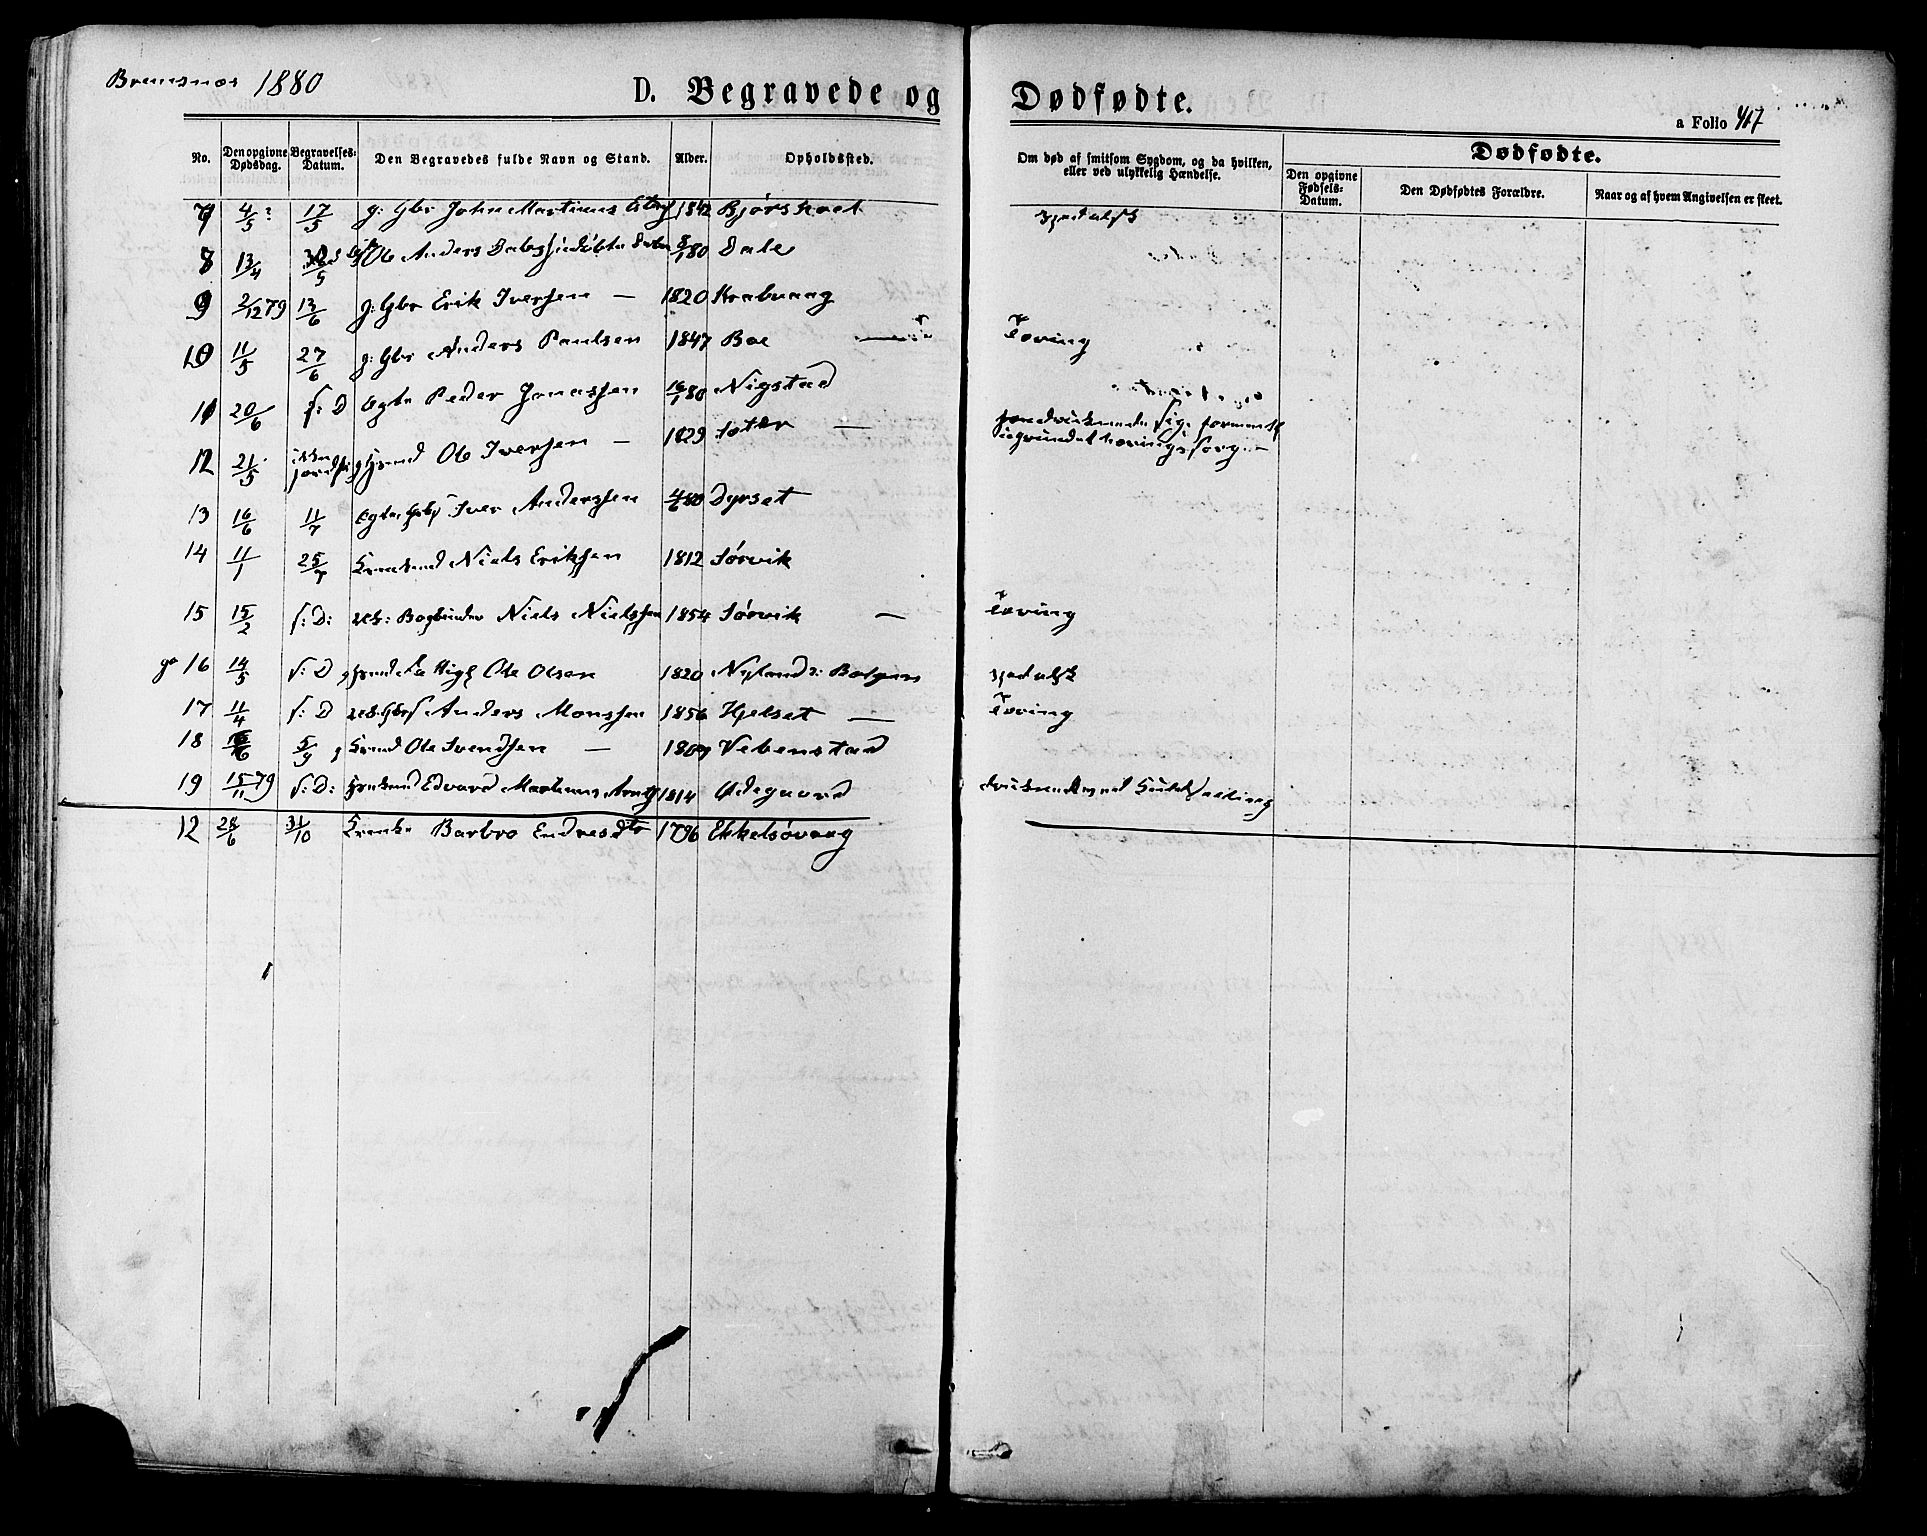 Bremsnæs 1880
D. Begravede og Dødfødte.
a Folio 417
No. Den opgivne Dødsdag. Begravelses-Datum. Den Begravedes fulde Navn og Stand. Alder. Opholdssted. Om død af smitsom Sygdom, og da hvilken, eller ved ulykkelig Hændelse. Dødfødte.
Den opgivne Fødsels-Datum. Den Dødfødtes Forældre. Naar og af hvem Angivelsen er skeet.
7 4/5? 17/5 g: Gbr John Martinus 1842 Bjørshoel spedalsk
8 13/4 Anders 80 Dale
9 2/12 79 13/6 g: Gbr Erik Iversen — 1820 Krabvaag
10 11/5 27/6 g: Gbr Anders Paulsen 1847 Boe Tæring
11 20/6 s: D Ægte Peder Jonassen 16/1 80 Nigstad
12 21/5 ikke Ole Iversen — 1829 —
13 16/6 11/7 Ægte Iver Anderssen 4/6 80 Dyrset
14 11/1 25/7 Niels Eriksen 1812 Sørvik
15 15/2 s: D: Bogbinder Niels Nielssen 1854 Sørvik — Tæring
16 14/5 s: D Ole Olsen 1820 Nyland spedalsk
17 11/4 s: D Anders Monssen 1856 Hjelset — Tæring
18 5/9 Ole Svendsen — Vebenstad
19 15/11 79 s: D: Edvard Martinus 1814 Ødegaard
12 28/6 31/10 Barbro Endresdtr 1796 Ekkelsøvaag